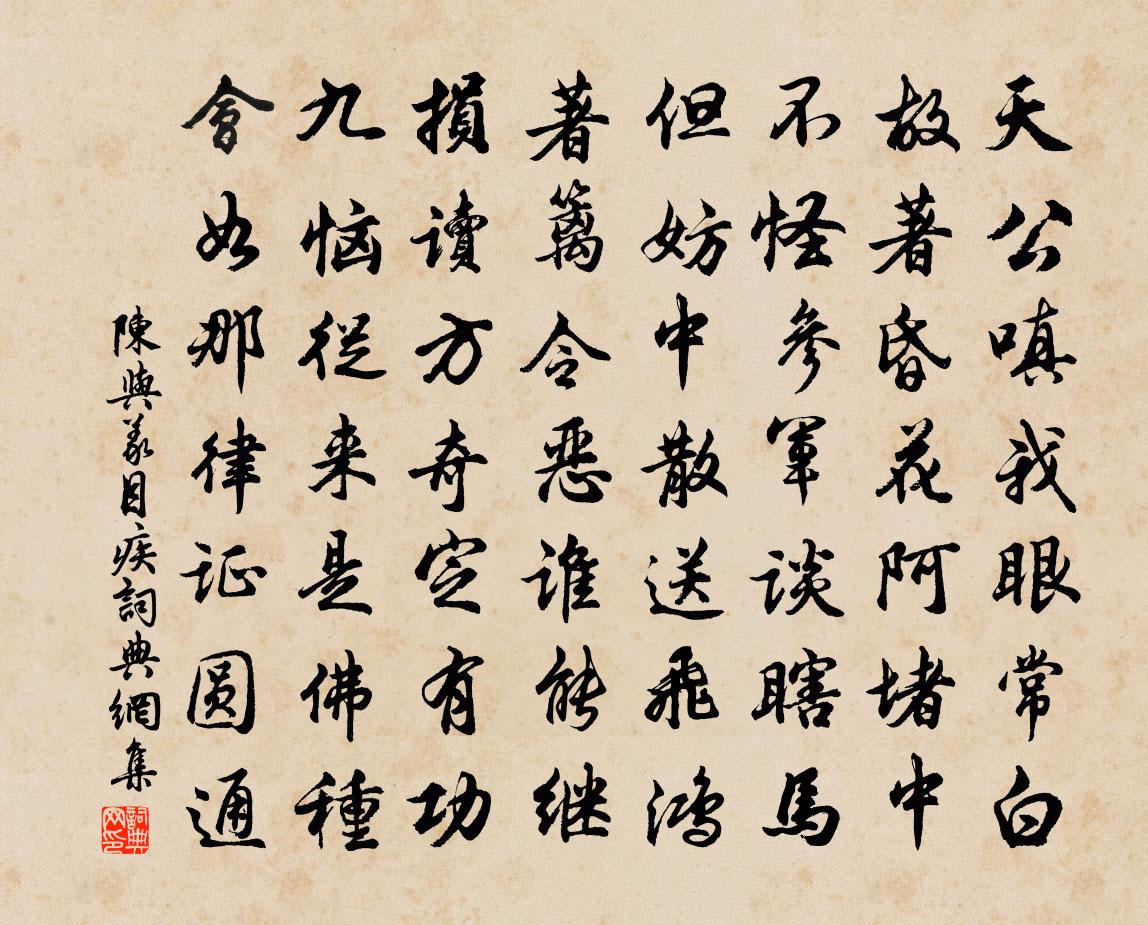 天公嗔我眼常白
故著昏花阿堵中
不怪參軍談瞎馬
但妨中散送飛鴻
著籬令惡誰能继
損讀方奇定有功
九恼從来是佛種
會如那律证圆通
陳與義目疾詞典網集
詞典网印